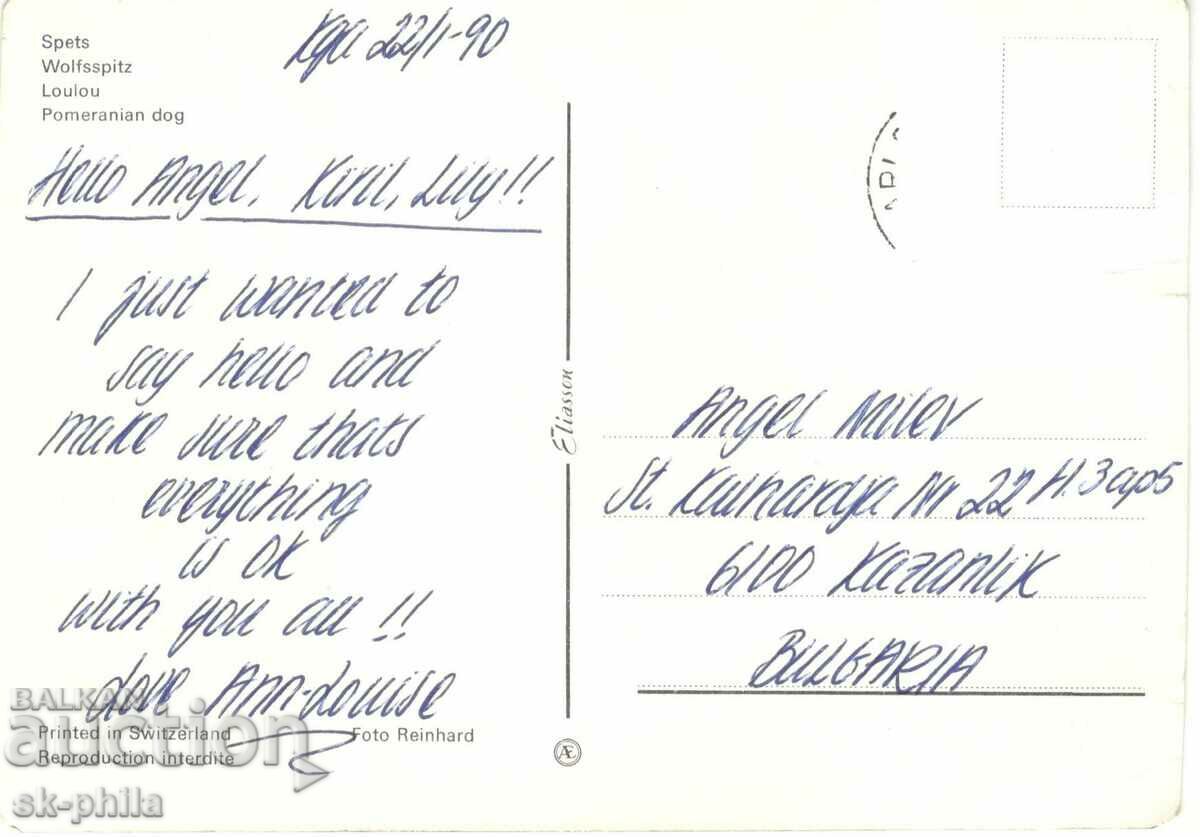 Spets
Wolfsspitz
Loulou
Pomeranian dog
Kga 22/1-90
Hello Angel, Kiril, Lily!!
I just wanted to
say hello and
make sure thats
everything
is OK
with you all !!
Love Ann-Louise
Printed in Switzerland
Foto Reinhard
Reproduction interdite
Eliasson
AE
Angel Milev
St. Kainardja Nr 22
6100 Kazanlik
BULGARIA
BALKAN
auction
sk-phila